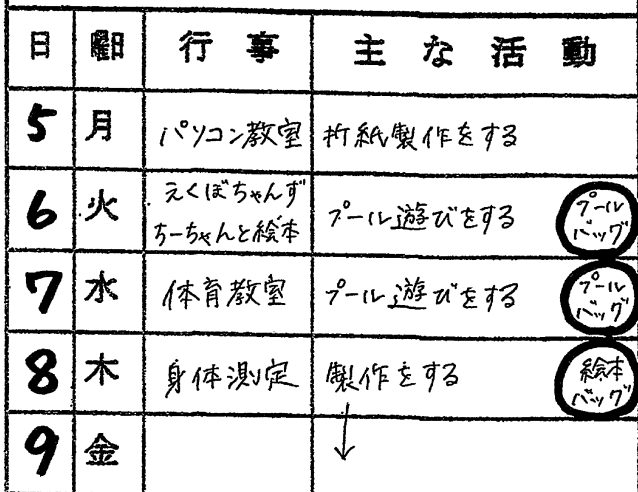 日 曜日 行事 主な活動
5 月 パソコン教室 折紙製作をする
6 火 えくぼちゃんず
ちーちゃんと絵本 プール遊びをする プール
バッグ
7 水 体育教室 プール遊びをする プール
バッグ
8 木 身体測定 製作をする 絵本
バッグ
9 金 ↓